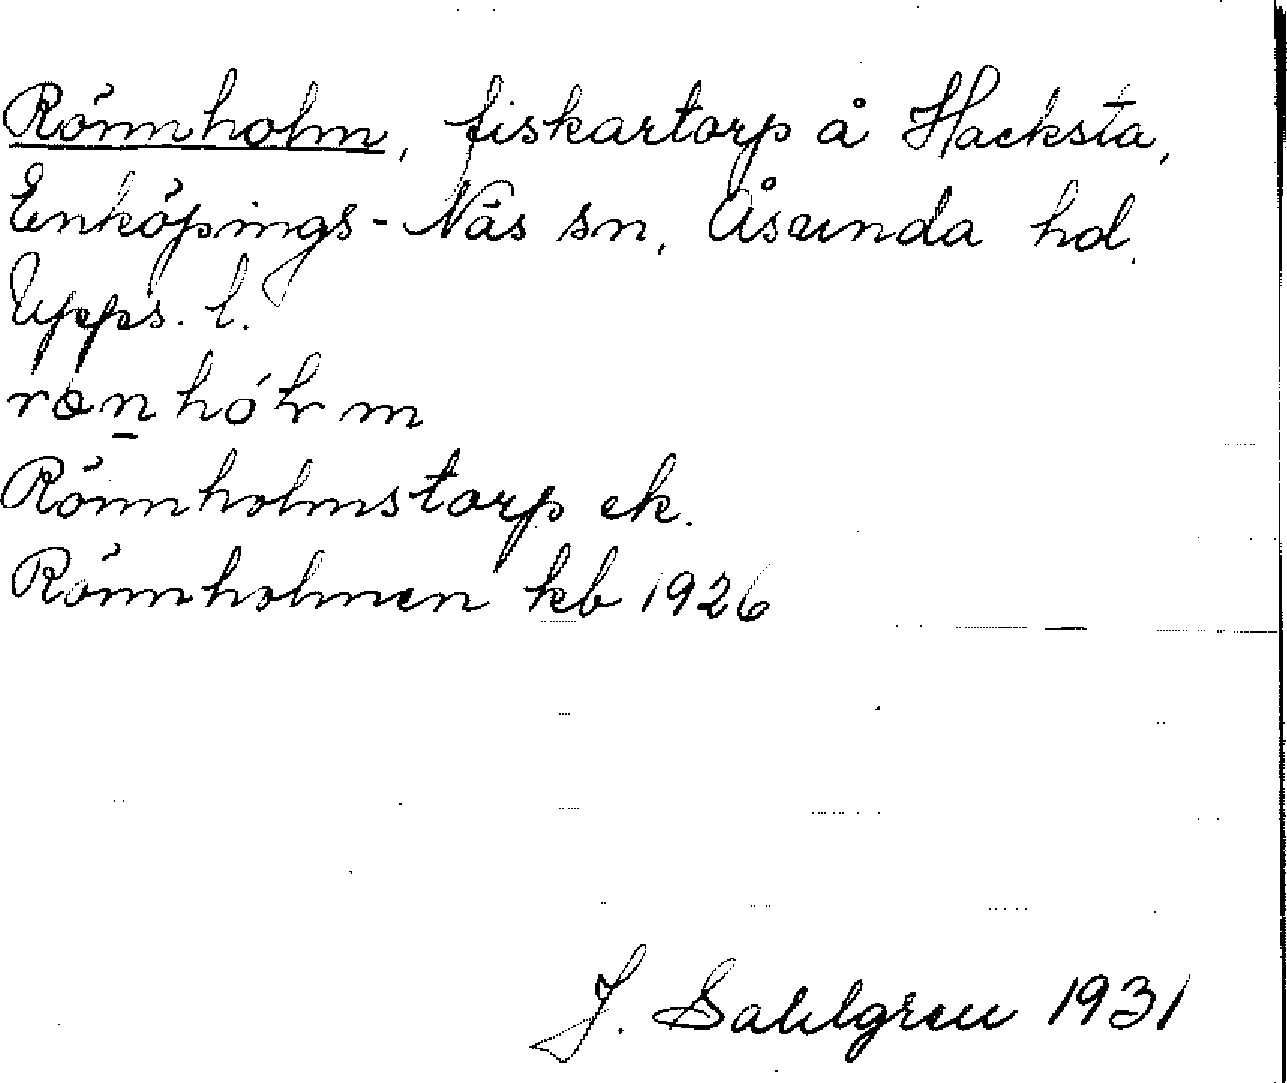 Rönnholm, fiskartorp å Hacksta,
Enköpings-Näs sn, Åsunda hd.
Upps. l.
Rönnholmstorp ek.
Rönnholmen kb 1926
J. Sahlgren 1931